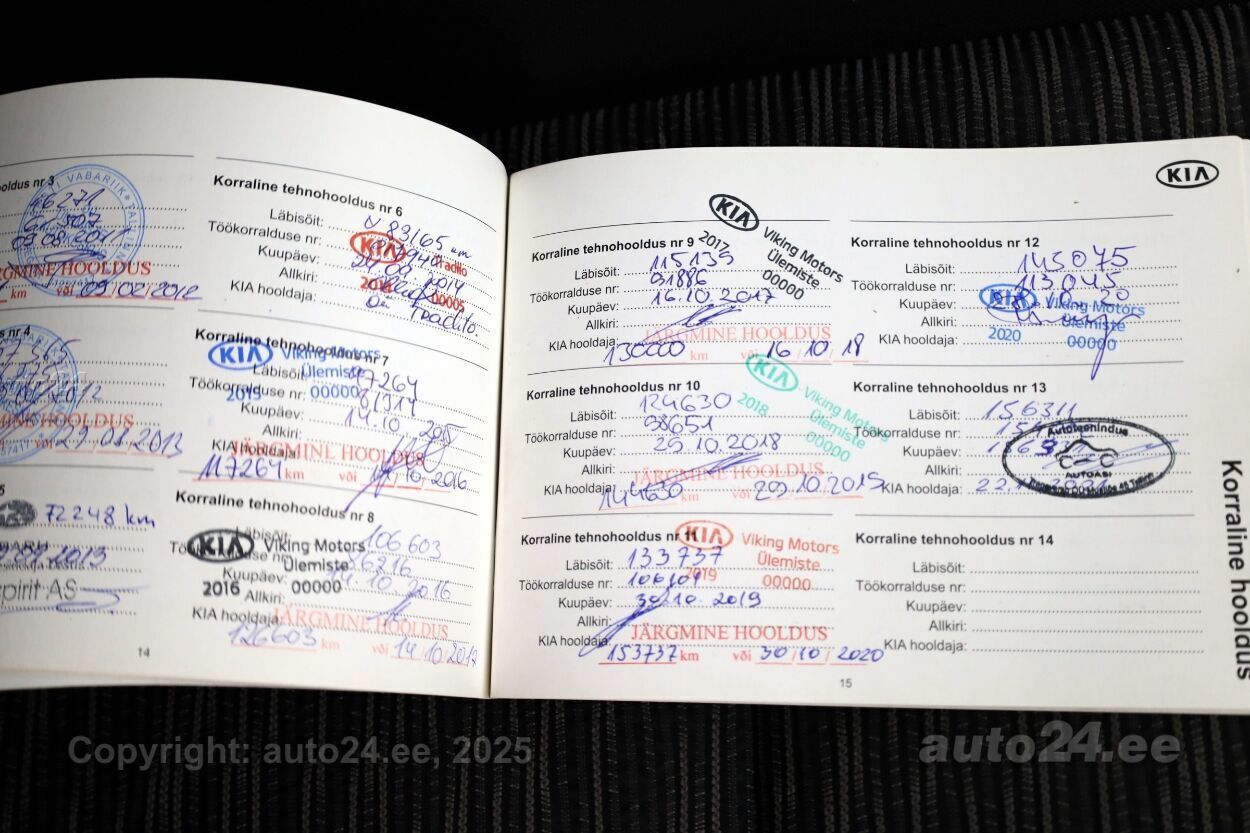 hooldus nr 3
46271
09.08.2011
JÄRGMINE HOOLDUS
km või 09/02/2012
nr 4
JÄRGMINE HOOLDUS
72248 km
spirit AS
Korraline tehnohooldus nr 6
Läbisõit: 83165 km
Töökorralduse nr:
KIA Tradilo
Kuupäev: 21.09.2014
Allkiri: 00005
KIA hooldaja: OÜ Tradilo
Korraline tehnohooldus nr 7
KIA Viking Motors
Ülemiste
Läbisõit: 97264
2015 00000
Töökorralduse nr:
Kuupäev:
Allkiri:
KIA hooldaja:
JÄRGMINE HOOLDUS
117264 km
Korraline tehnohooldus nr 8
Läbisõit: 106603
KIA Viking Motors
Ülemiste
2016 00000
Kuupäev: 14.10.2016
Allkiri:
KIA hooldaja:
JÄRGMINE HOOLDUS
126603 km või 14/10/2017
14
KIA
Korraline tehnohooldus nr 9
KIA Viking Motors
2017 Ülemiste
00000
Läbisõit: 115139
Töökorralduse nr: 91886
Kuupäev: 16.10.2017
Allkiri:
KIA hooldaja:
JÄRGMINE HOOLDUS
130000 km või 16/10/18
Korraline tehnohooldus nr 10
KIA Viking Motors
2018 Ülemiste
00000
Läbisõit: 124630
Töökorralduse nr: 98651
Kuupäev: 29.10.2018
Allkiri:
KIA hooldaja:
JÄRGMINE HOOLDUS
144630 km või 29.10.2019
Korraline tehnohooldus nr 11
KIA Viking Motors
Ülemiste
2019 00000
Läbisõit: 133737
Töökorralduse nr: 106101
Kuupäev: 30.10.2019
Allkiri:
KIA hooldaja:
JÄRGMINE HOOLDUS
153737 km või 30/10/2020
Korraline tehnohooldus nr 12
Läbisõit: 143075
Töökorralduse nr: 113045
Kuupäev:
KIA Viking Motors
Ülemiste
2020 00000
Allkiri:
KIA hooldaja:
Korraline tehnohooldus nr 13
Läbisõit: 156311
Töökorralduse nr:
Autoteenindus
Kuupäev:
AUTOASI
Allkiri:
KIA hooldaja:
Korraline tehnohooldus nr 14
Läbisõit:
Töökorralduse nr:
Kuupäev:
Allkiri:
KIA hooldaja:
15
Korraline hooldus
Copyright: auto24.ee, 2025
auto24.ee